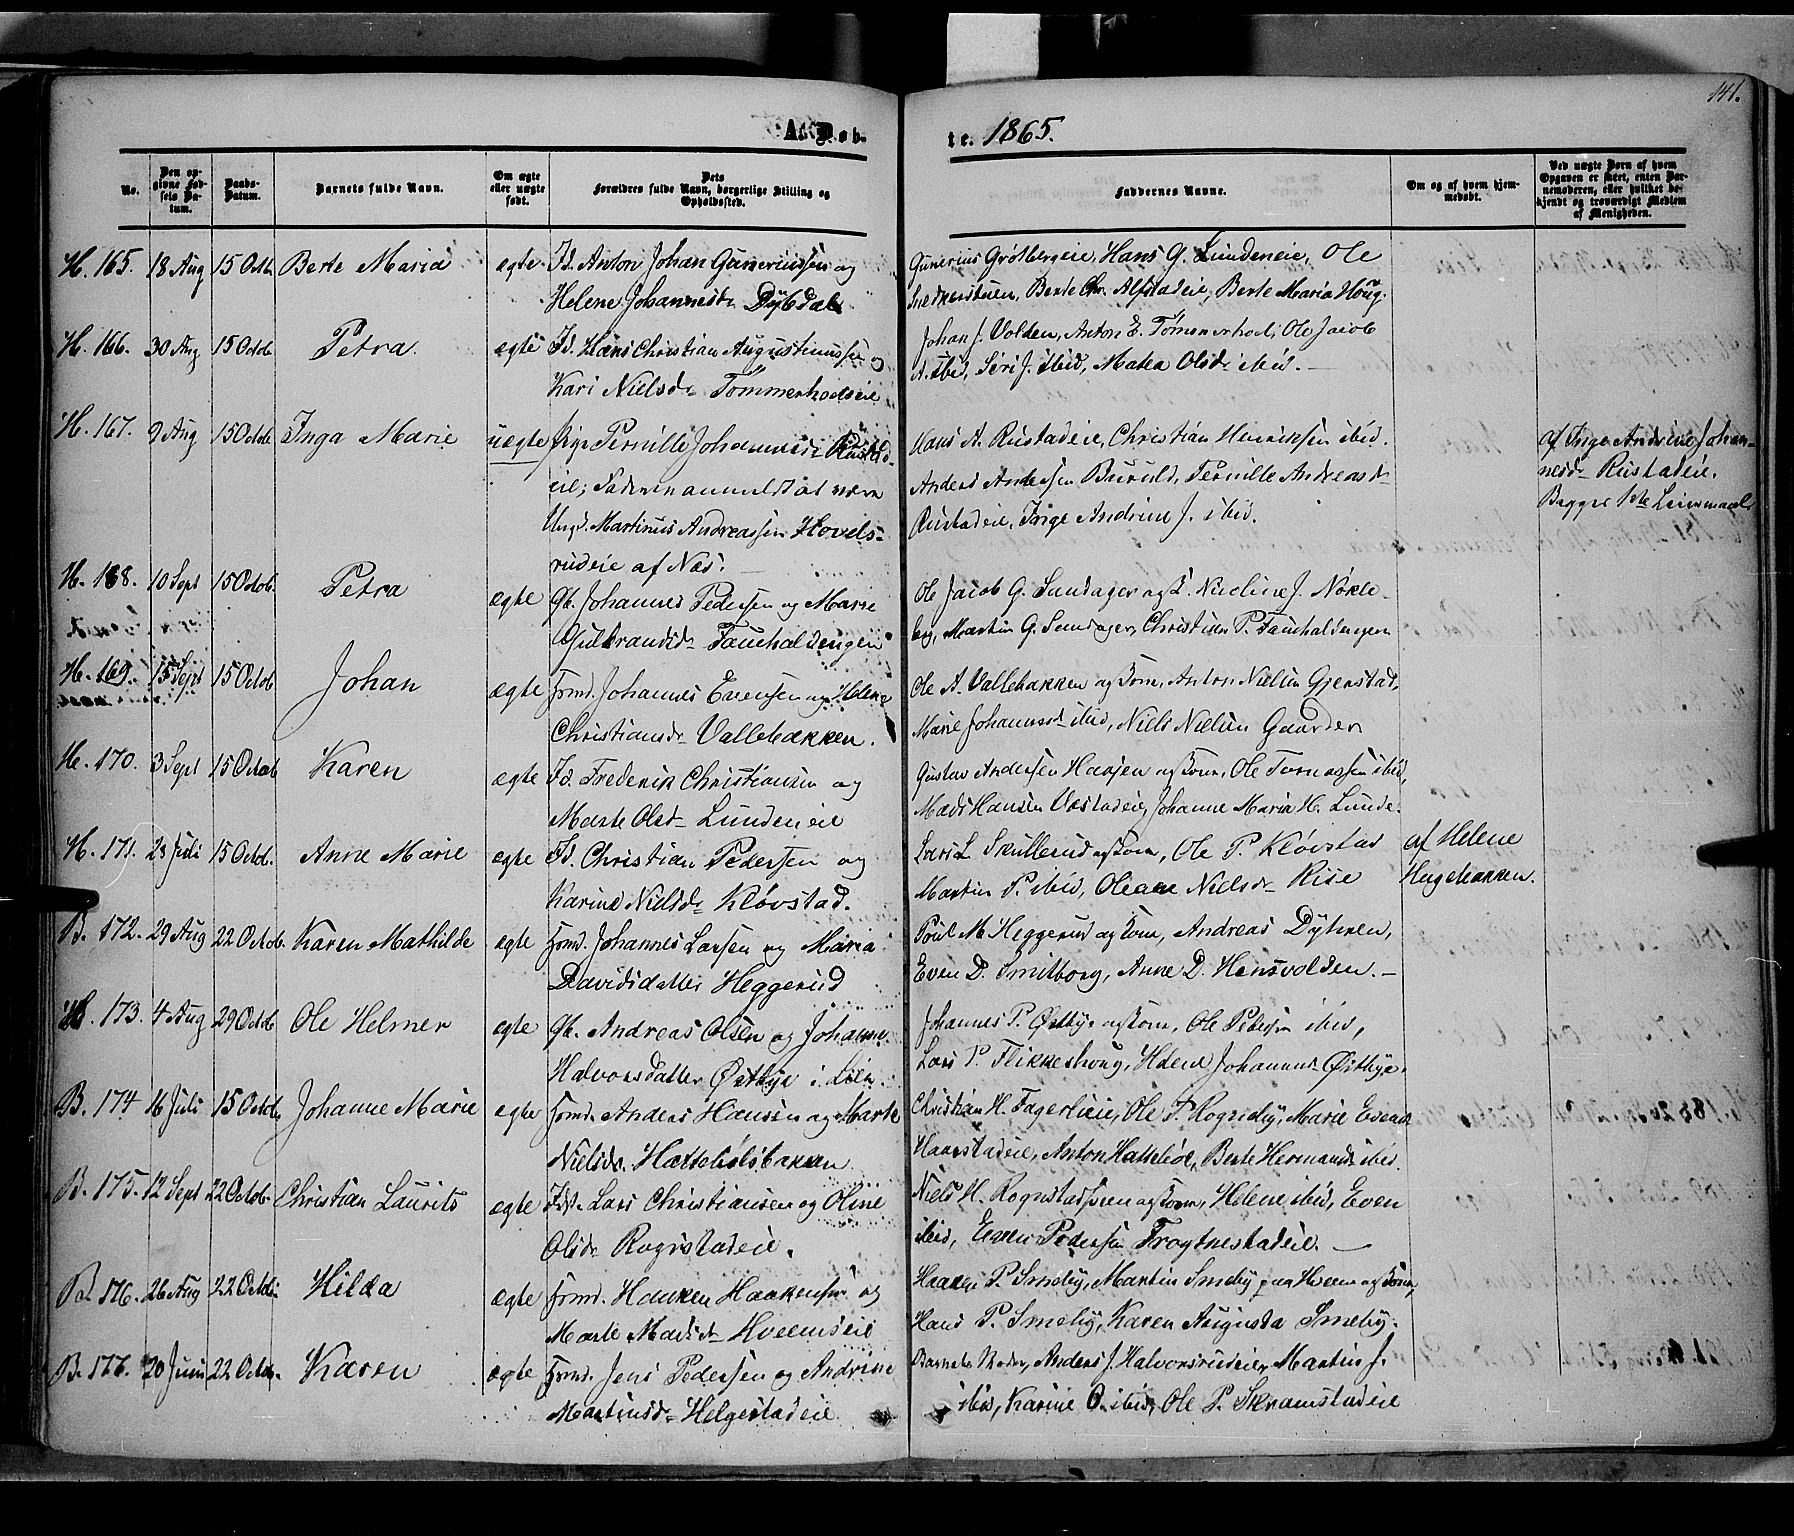 141.
A. Døb-
te. 1865.
No.
Den opgivne Fødsels Datum.
Daabs-Datum.
Barnets fulde Navn.
Om ægte eller uægte født.
Dets Forældres fulde Navn, borgerlige Stilling og Opholdssted.
Faddernes Navne.
Om og af hvem hjemmedøbt.
Ved uægte Børn af hvem Opgaven er skeet, enten Barnemoderen, eller hvilket bekjendt og troværdigt Medlem af Menigheden.
H. 165. 18 Aug 15 Octb. Berte Maria ægte Id. Anton Johan Guneriussen og
Helene Johannesdr Dybdal
Gunerius Grøtbergeie, Hans G. Lundeneie, Ole
Snedkerstuen, Berte Chr. Alfstadeie, Berte Maria Houg.
H. 166. 30 Aug 15 Octob. Petra ægte Id. Hans Christian Augustinussen og
Kari Nielsdr Tømmerhodseie
Johan J. Volden, Anton E. Tømmerhol, Ole Jacob
A. ibid, Siri J. ibid, Mathea Olsdr ibid. —
H. 167. 9 Aug 15 Octob. Inga Marie uægte Pige Pernille Johannesdr Rustad-
eie; Faderen anmeldt at være
Ungk. Martinus Andreassen Hovels-
rudeie af Næs. —
Hans A. Rustadeie, Christian Henriksen ibid.
Anders Andersen Buruld, Pernille Andreasdr
Rustadeie, Inge Andrine J. ibid.
af Inge Andrine Johan-
nesdr Rustadeie.
Begges 1ste Leiermaal
H. 168. 10 Sept 15 Octob. Petra ægte Gb. Johannes Pedersen og Marie
Gulbrandsdr Fauchaldengen
Ole Jacob G. Sundager og K. Nicoline J. Nøkle-
by, Martin G. Sundager, Christian P. Fauchaldengen
H. 169. 15 Sept 15 Octob Johan ægte Frmd. Johannes Evensen og Helene
Christiansdr Vallebakken.
Ole A. Vallebakken og Kone, Anton Nielsen Gjerstad,
Marie Johannesdr ibid, Niels Nielsen Gaarder
H. 170. 3 Sept 15 Octob Karen ægte Id. Frederik Christiansen og
Marte Olsdr Lundeneie
Gustav Andersen Haajen og Kone, Ole Tomassen ibid,
Mads Hansen Vestadeie, Johanne Maria H. Lunde.
H. 171. 23 Juli 15 Octob. Anne Marie ægte Id. Christian Pedersen og
Karine Nielsdr Kløvstad.
Lars L. Skullerud og Kone, Ole P. Kløvstad
Martin P. ibid, Oleane Nielsdr Rise
af Helene
Hagebakken.
B. 172. 29 Aug 22 Octob. Karen Mathilde ægte Frmd. Johannes Larsen og Maria
Davidsdatter Heggerud
Poul M. Heggerud og Kone, Andreas Dyhren,
Even D. Smitborg, Anne D. Hensvolden. —
H. 173. 4 Aug 29 Octob Ole Helmer ægte Gb. Andreas Olsen og Johanne
Halvorsdatter Østbye i Lien.
Johannes P. Østbye og Kone, Ole Pedersen ibid,
Lars P. Flikkeshoug, Helene Johannesdr Østbye.
B. 174 16 Juli 15 Octob Johanne Marie ægte Frmd. Anders Hansen og Marte
Nielsdr. Hattebølsbakken
Christian H. Fagerlieie, Ole P. Rognsby, Marie Evensdr
Haarstadeie, Anton Hattebøl, Berte Hermansdr ibid.
B. 175. 12 Sept 22 Octob. Christian Laurits ægte Id. Lars Christiansen og Oline
Olsdr Rognstadeie.
Niels H. Rognstad og Kone, Helene ibid, Even
ibid, Even Pedersen Frogtnestadeie. —
B. 176. 26 Aug 22 Octob. Hilda ægte Frmd. Haaken Haakensen og
Marte Madsdr Hveemseie
Haaken P. Smeby, Martin Smeby paa Hveem og Kone,
Hans P. Smeby, Karen Augusta Smeby.
B. 177. 20 Juni 22 Octob. Karen ægte Frmd. Jens Pedersen og Andrine
Martinsdr Helgestadeie
Barnets Moder, Anders J. Halvorsrudeie, Martin J.
ibid, Karine O. ibid, Ole P. Skramstadeie